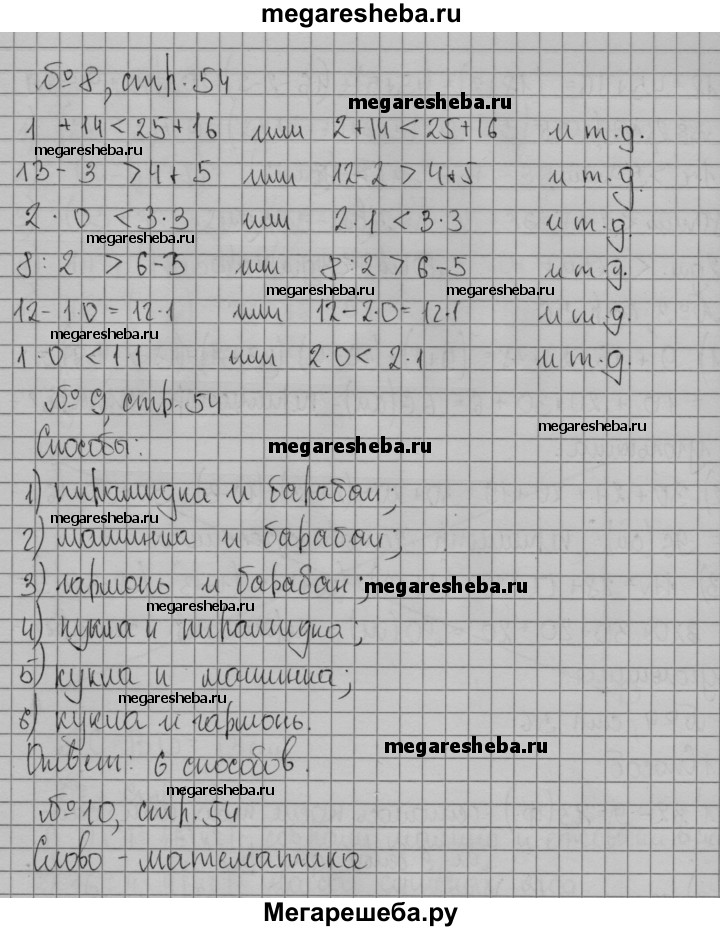 megaresheba.ru
№8, стр. 54
megaresheba.ru
1 + 14 < 25 + 16 или 2 + 14 < 25 + 16 и т.д.
megaresheba.ru
13 - 3 > 4 + 5 или 12 - 2 > 4 + 5 и т.д.
2 · 0 < 3 · 3 или 2 · 1 < 3 · 3 и т.д.
megaresheba.ru
8 : 2 > 6 - 3 или 8 : 2 > 6 - 5 и т.д.
megaresheba.ru megaresheba.ru
12 - 1 · 0 = 12 · 1 или 12 - 2 · 0 = 12 · 1 и т.д.
megaresheba.ru
1 · 0 < 1 · 1 или 2 · 0 < 2 · 1 и т.д.
№9, стр. 54
megaresheba.ru
Способы:
megaresheba.ru
1) пирамидка и барабан;
megaresheba.ru
2) машинка и барабан;
3) гармонь и барабан;
megaresheba.ru
megaresheba.ru
4) кукла и пирамидка;
5) кукла и машинка;
megaresheba.ru
6) кукла и гармонь.
megaresheba.ru
Ответ: 6 способов.
megaresheba.ru
№10, стр. 54
Слово - математика
Мегарешеба.ру